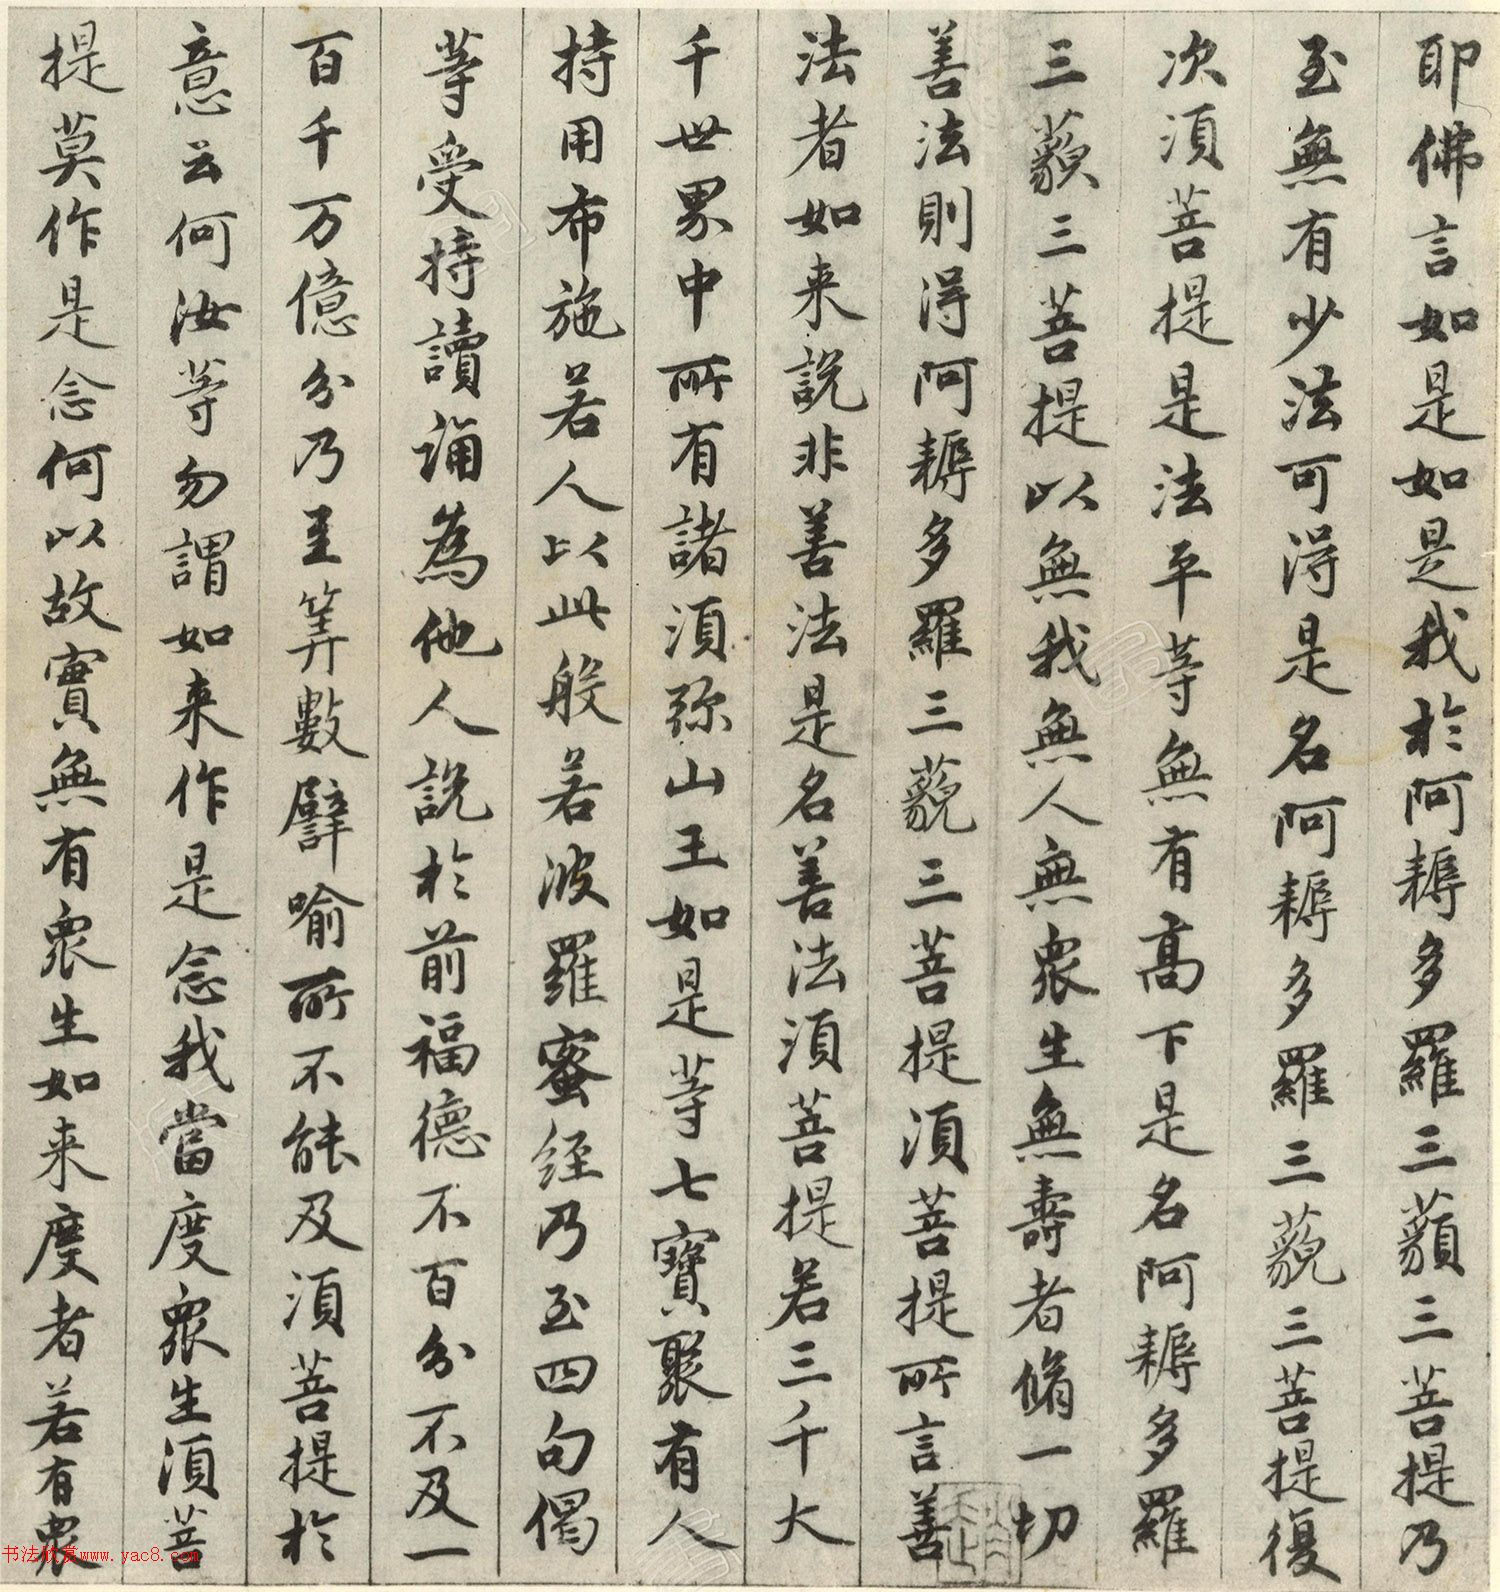 耶佛言如是如是我於阿耨多羅三藐三菩提乃
至無有少法可得是名阿耨多羅三藐三菩提復
次須菩提是法平等無有高下是名阿耨多羅
三藐三菩提以無我無人無眾生無壽者脩一切
善法則得阿耨多羅三藐三菩提須菩提所言善
法者如来說非善法是名善法須菩提若三千大
千世界中所有諸須弥山王如是等七寶聚有人
持用布施若人以此般若波羅蜜經乃至四句偈
等受持讀誦為他人說於前福德不百分不及一
百千万億分乃至筭數譬喻所不能及須菩提於
意云何汝等勿謂如来作是念我當度眾生須菩
提莫作是念何以故實無有眾生如来度者若有眾
书法欣赏www.yac8.com